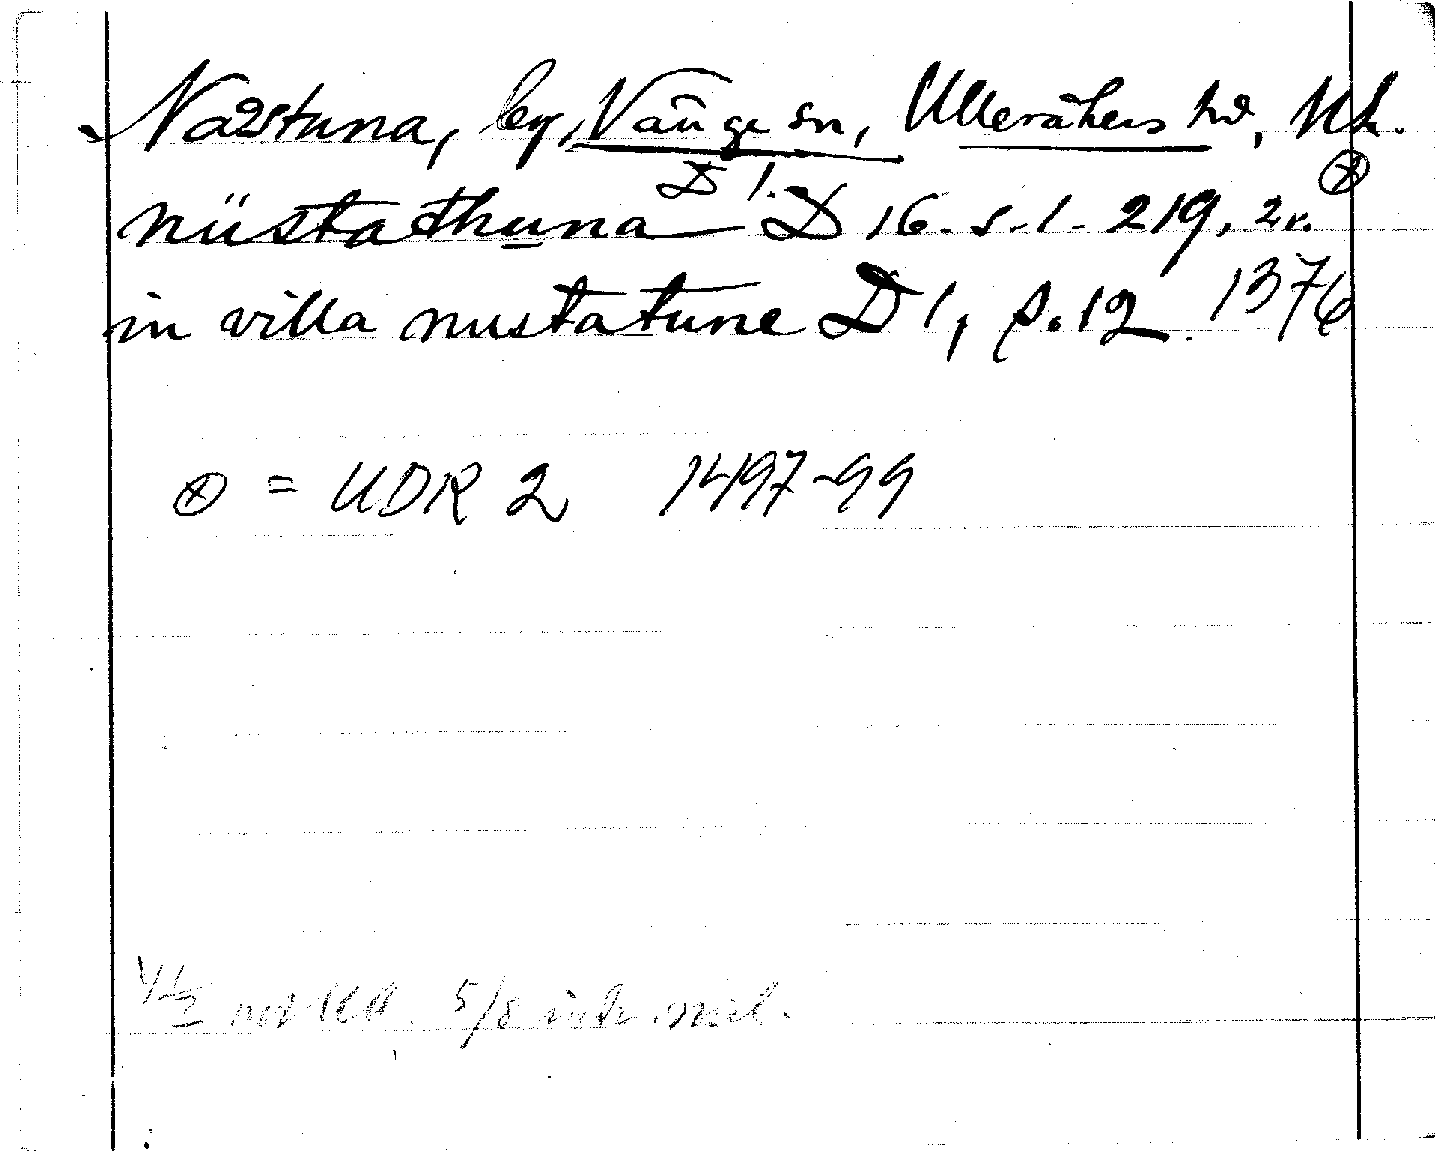 Nåstuna, by, Vänge sn, Ulleråkers hd, UL.
D 1.
nüstathuna D 16. s. 1. 219, 2r. ⊗
in villa nustatune D 1, p. 12. 1376
⊗ = UDR 2 1497-99
5/8